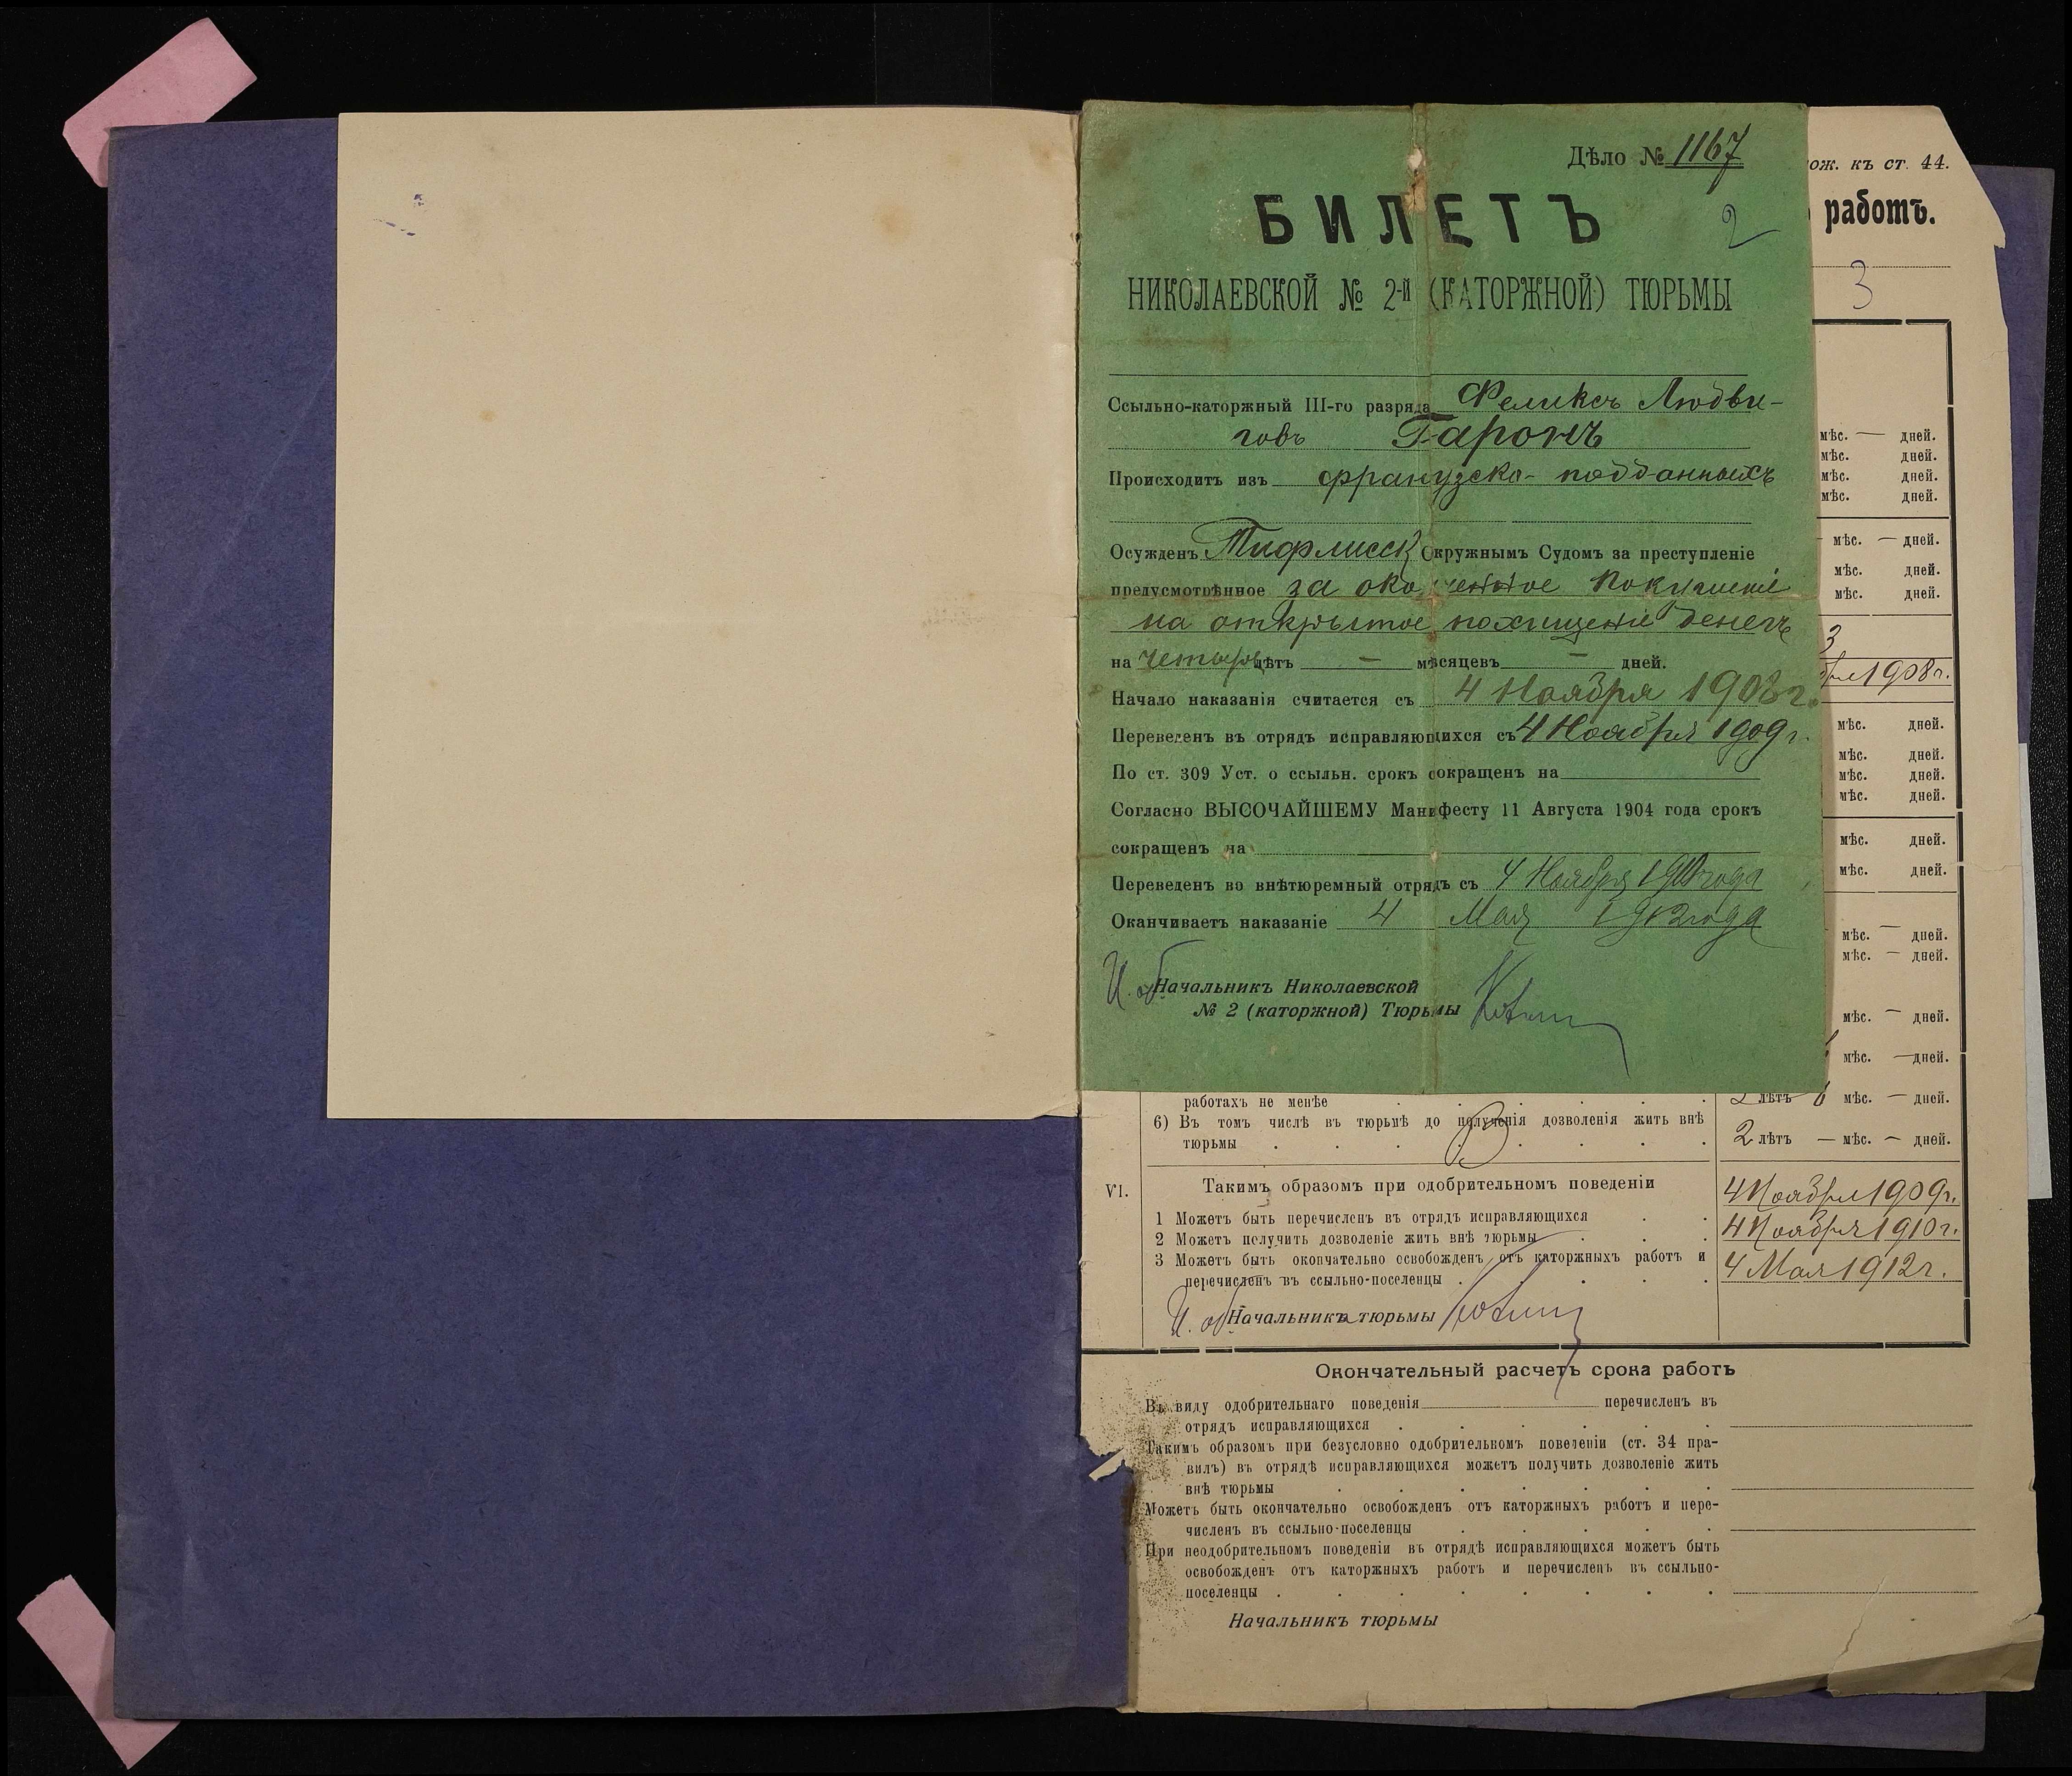 Дѣло № 1167
БИЛЕТЪ
2
НИКОЛАЕВСКОЙ № 2-й (КАТОРЖНОЙ) ТЮРЬМЫ
Ссыльно-каторжный III-го разряда Феликсъ Людви-
говъ Гаронъ
Происходитъ изъ французско-подданныхъ
Осужденъ Тифлисск Окружнымъ Судомъ за преступленіе
предусмотрѣнное за оконченное покушеніе
на открытое похищеніе денегъ
на четыре лѣтъ — мѣсяцевъ — дней.
Начало наказанія считается съ 4 Ноября 1908 г.
Переведенъ въ отрядъ исправляющихся съ 4 Ноября 1909 г.
По ст. 309 Уст. о ссыльн. срокъ сокращенъ на
Согласно ВЫСОЧАЙШЕМУ Манифесту 11 Августа 1904 года срокъ
сокращенъ на
Переведенъ во внѣтюремный отрядъ съ 4 Ноября 1910 года
Оканчиваетъ наказаніе 4 Мая 1912 года
И. об. Начальникъ Николаевской
№ 2 (каторжной) Тюрьмы
ож. къ ст. 44.
работъ.
3
мѣс. — дней.
мѣс. дней.
мѣс. дней.
мѣс. дней.
мѣс. — дней.
мѣс. дней.
мѣс. дней.
3
1908 г.
мѣс. дней.
мѣс. дней.
мѣс. дней.
мѣс. дней.
мѣс. дней.
мѣс. дней.
мѣс. — дней.
мѣс. — дней.
мѣс. — дней.
мѣс. — дней.
работахъ не менѣе 2 лѣтъ 6 мѣс. — дней.
6) Въ томъ числѣ въ тюрьмѣ до полученія дозволенія жить внѣ
тюрьмы 2 лѣтъ — мѣс. — дней.
VI. Такимъ образомъ при одобрительномъ поведеніи
1 Можетъ быть перечисленъ въ отрядъ исправляющихся 4 Ноября 1909 г.
2 Можетъ получить дозволеніе жить внѣ тюрьмы 4 Ноября 1910 г.
3 Можетъ быть окончательно освобожденъ отъ каторжныхъ работъ и
перечисленъ въ ссыльно-поселенцы 4 Мая 1912 г.
И. об. Начальника тюрьмы
Окончательный расчетъ срока работъ
Въ виду одобрительнаго поведенія перечисленъ въ
отрядъ исправляющихся
Такимъ образомъ при безусловно одобрительномъ поведеніи (ст. 34 пра-
вилъ) въ отрядѣ исправляющихся можетъ получить дозволеніе жить
внѣ тюрьмы
Можетъ быть окончательно освобожденъ отъ каторжныхъ работъ и пере-
численъ въ ссыльно-поселенцы
При неодобрительномъ поведеніи въ отрядѣ исправляющихся можетъ быть
освобожденъ отъ каторжныхъ работъ и перечисленъ въ ссыльно-
поселенцы
Начальникъ тюрьмы